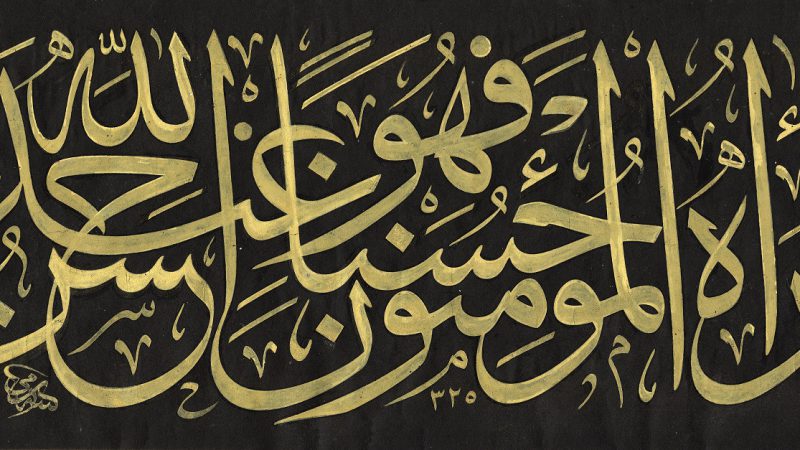 رآه المؤمنون حسناً فهو عند الله حسن
٣٢٥